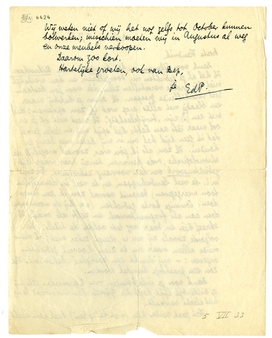 4424
Wij weten niet of wij het nog zelfs tot October kunnen
bolwerken; misschien moeten wij in Augustus al weg
en onze meubels verkoopen.
Daarom zoo kort.
Hartelijke groeten, ook van Bep,
je EdP.
5 VII 33